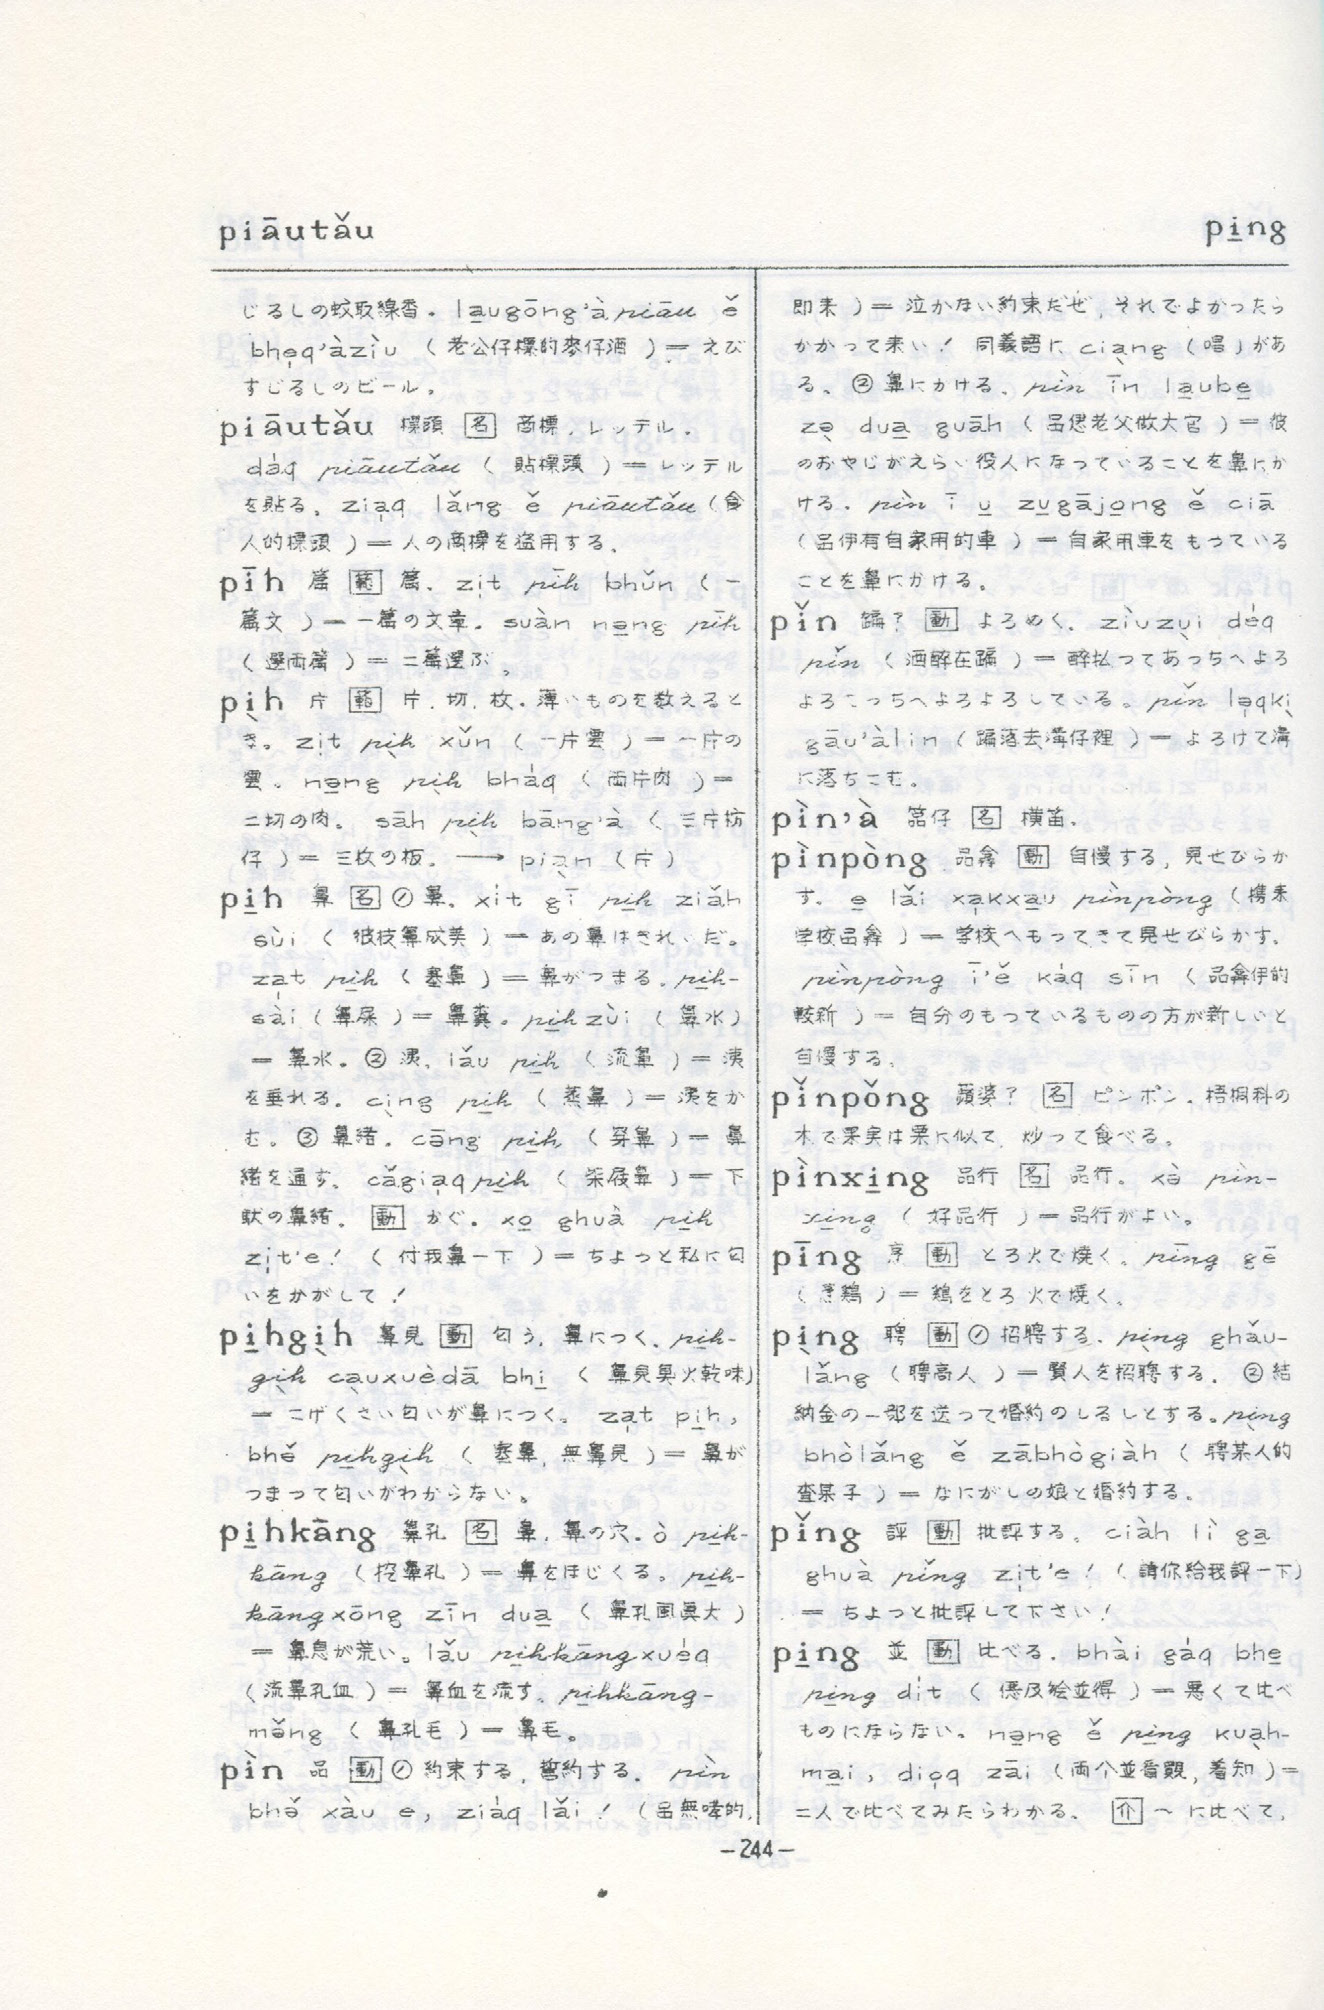 piāutǎu
pi̱ng
じるしの蚊取線香。la̱ugōng'à piāu ě
bhe̱q'àzìu (老公仔標的麥仔酒)=えび
すじるしのビール。
piāutǎu 標頭 [名] 商標,レッテル。
dáq piāutǎu (貼標頭)=レッテル
を貼る。zia̱q lǎng ě piāutǎu (食
人的標頭)=人の商標を盗用する。
pīh 篇 [範] 篇。zi̱t pīh bhǔn (一
篇文)=一篇の文章。suàn ne̱ng pīh
(選両篇)=二篇選ぶ。
pi̱h 片 [範] 片,切,枚。薄いものを数えると
き。zi̱t pi̱h xǔn (一片雲)=一片の
雲。ne̱ng pi̱h bháq (両片肉)=
二切の肉。sāh pi̱h bāng'à (三片枋
仔)=三枚の板。→ pia̱n (片)
pi̱h 鼻 [名] ①鼻。xít gī pi̱h ziǎh
sùi (彼枝鼻成美)=あの鼻はきれいだ。
za̱t pi̱h (塞鼻)=鼻がつまる。pi̱h-
sài (鼻屎)=鼻糞。pi̱hzùi (鼻水)
=鼻水。②洟。lǎu pi̱h (流鼻)=洟
を垂れる。ci̱ng pi̱h (蒸鼻)=洟をか
む。③鼻緒。cāng pi̱h (穿鼻)=鼻
緒を通す。cǎgia̱qpi̱h (柴屐鼻)=下
駄の鼻緒。[動] かぐ。xo̱ ghuà pi̱h
zi̱t'e! (付我鼻一下)=ちょっと私に匂
いをかがして!
pi̱hgi̱h 鼻見 [動] 匂う,鼻につく。pi̱h-
gi̱h ca̱uxuèdā bhi̱ (鼻見臭火乾味)
=こげくさい匂いが鼻につく。za̱t pi̱h,
bhě pi̱hgi̱h (塞鼻,無鼻見)=鼻が
つまって匂いがわからない。
pi̱hkāng 鼻孔 [名] 鼻,鼻の穴。ò pi̱h-
kāng (挖鼻孔)=鼻をほじくる。pi̱h-
kāngxōng zīn dua̱ (鼻孔風眞大)
=鼻息が荒い。lǎu pi̱hkāngxuéq
(流鼻孔血)=鼻血を流す。pi̱hkāng-
mǒng (鼻孔毛)=鼻毛。
pìn 品 [動] ①約束する,誓約する。pìn
bhě xàu e, ziáq lǎi! (品無哮的,
即来)=泣かない約束だぜ,それでよかったら
かかって来い! 同義語に cia̱ng (唱)があ
る。②鼻にかける。pìn īn la̱ube̱
ze̱ dua̱ guāh (品㑲老父做大官)=彼
のおやじがえらい役人になっていることを鼻にか
ける。pìn ī u̱ zu̱gājo̱ng ě ciā
(品伊有自家用的車)=自家用車をもっている
ことを鼻にかける。
pǐn 蹁? [動] よろめく。zìuzu̱i déq
pǐn (酒醉在蹁)=酔払ってあっちへよろ
よろこっちへよろよろしている。pǐn la̱qki̱
gāu'àlin (蹁落去溝仔裡)=よろけて溝
に落ちこむ。
pìn'à 笛仔 [名] 横笛。
pìnpòng 品 [動] 自慢する,見せびらか
す。e̱ lǎi xa̱kxa̱u pìnpòng (携来
学校品)=学校へもってきて見せびらかす。
pìnpòng ī'ě káq sīn (品伊的
較新)=自分のもっているものの方が新しいと
自慢する。
pǐnpǒng 蘋婆? [名] ピンポン。梧桐科の
木で果実は栗に似て,炒って食べる。
pìnxi̱ng 品行 [名] 品行。xò pìn-
xi̱ng (好品行)=品行がよい。
pīng 烹 [動] とろ火で焼く。pīng gē
(烹鶏)=鶏をとろ火で焼く。
pi̱ng 聘 [動] ①招聘する。pi̱ng ghǎu-
lǎng (聘高人)=賢人を招聘する。②結
納金の一部を送って婚約のしるしとする。pi̱ng
bhòlǎng ě zābhògiàh (聘某人的
査某子)=なにがしの娘と婚約する。
pǐng 評 [動] 批評する。ciàh lì ga̱
ghuà pǐng zi̱t'e! (請你給我評一下)
=ちょっと批評して下さい!
pi̱ng 並 [動] 比べる。bhài gáq bhe̱
pi̱ng dít (及並得)=悪くて比べ
ものにならない。ne̱ng ě pi̱ng kua̱h-
ma̱i, dio̱q zāi (両个並看覷,着知)=
二人で比べてみたらわかる。[介] ~に比べて,
—244—